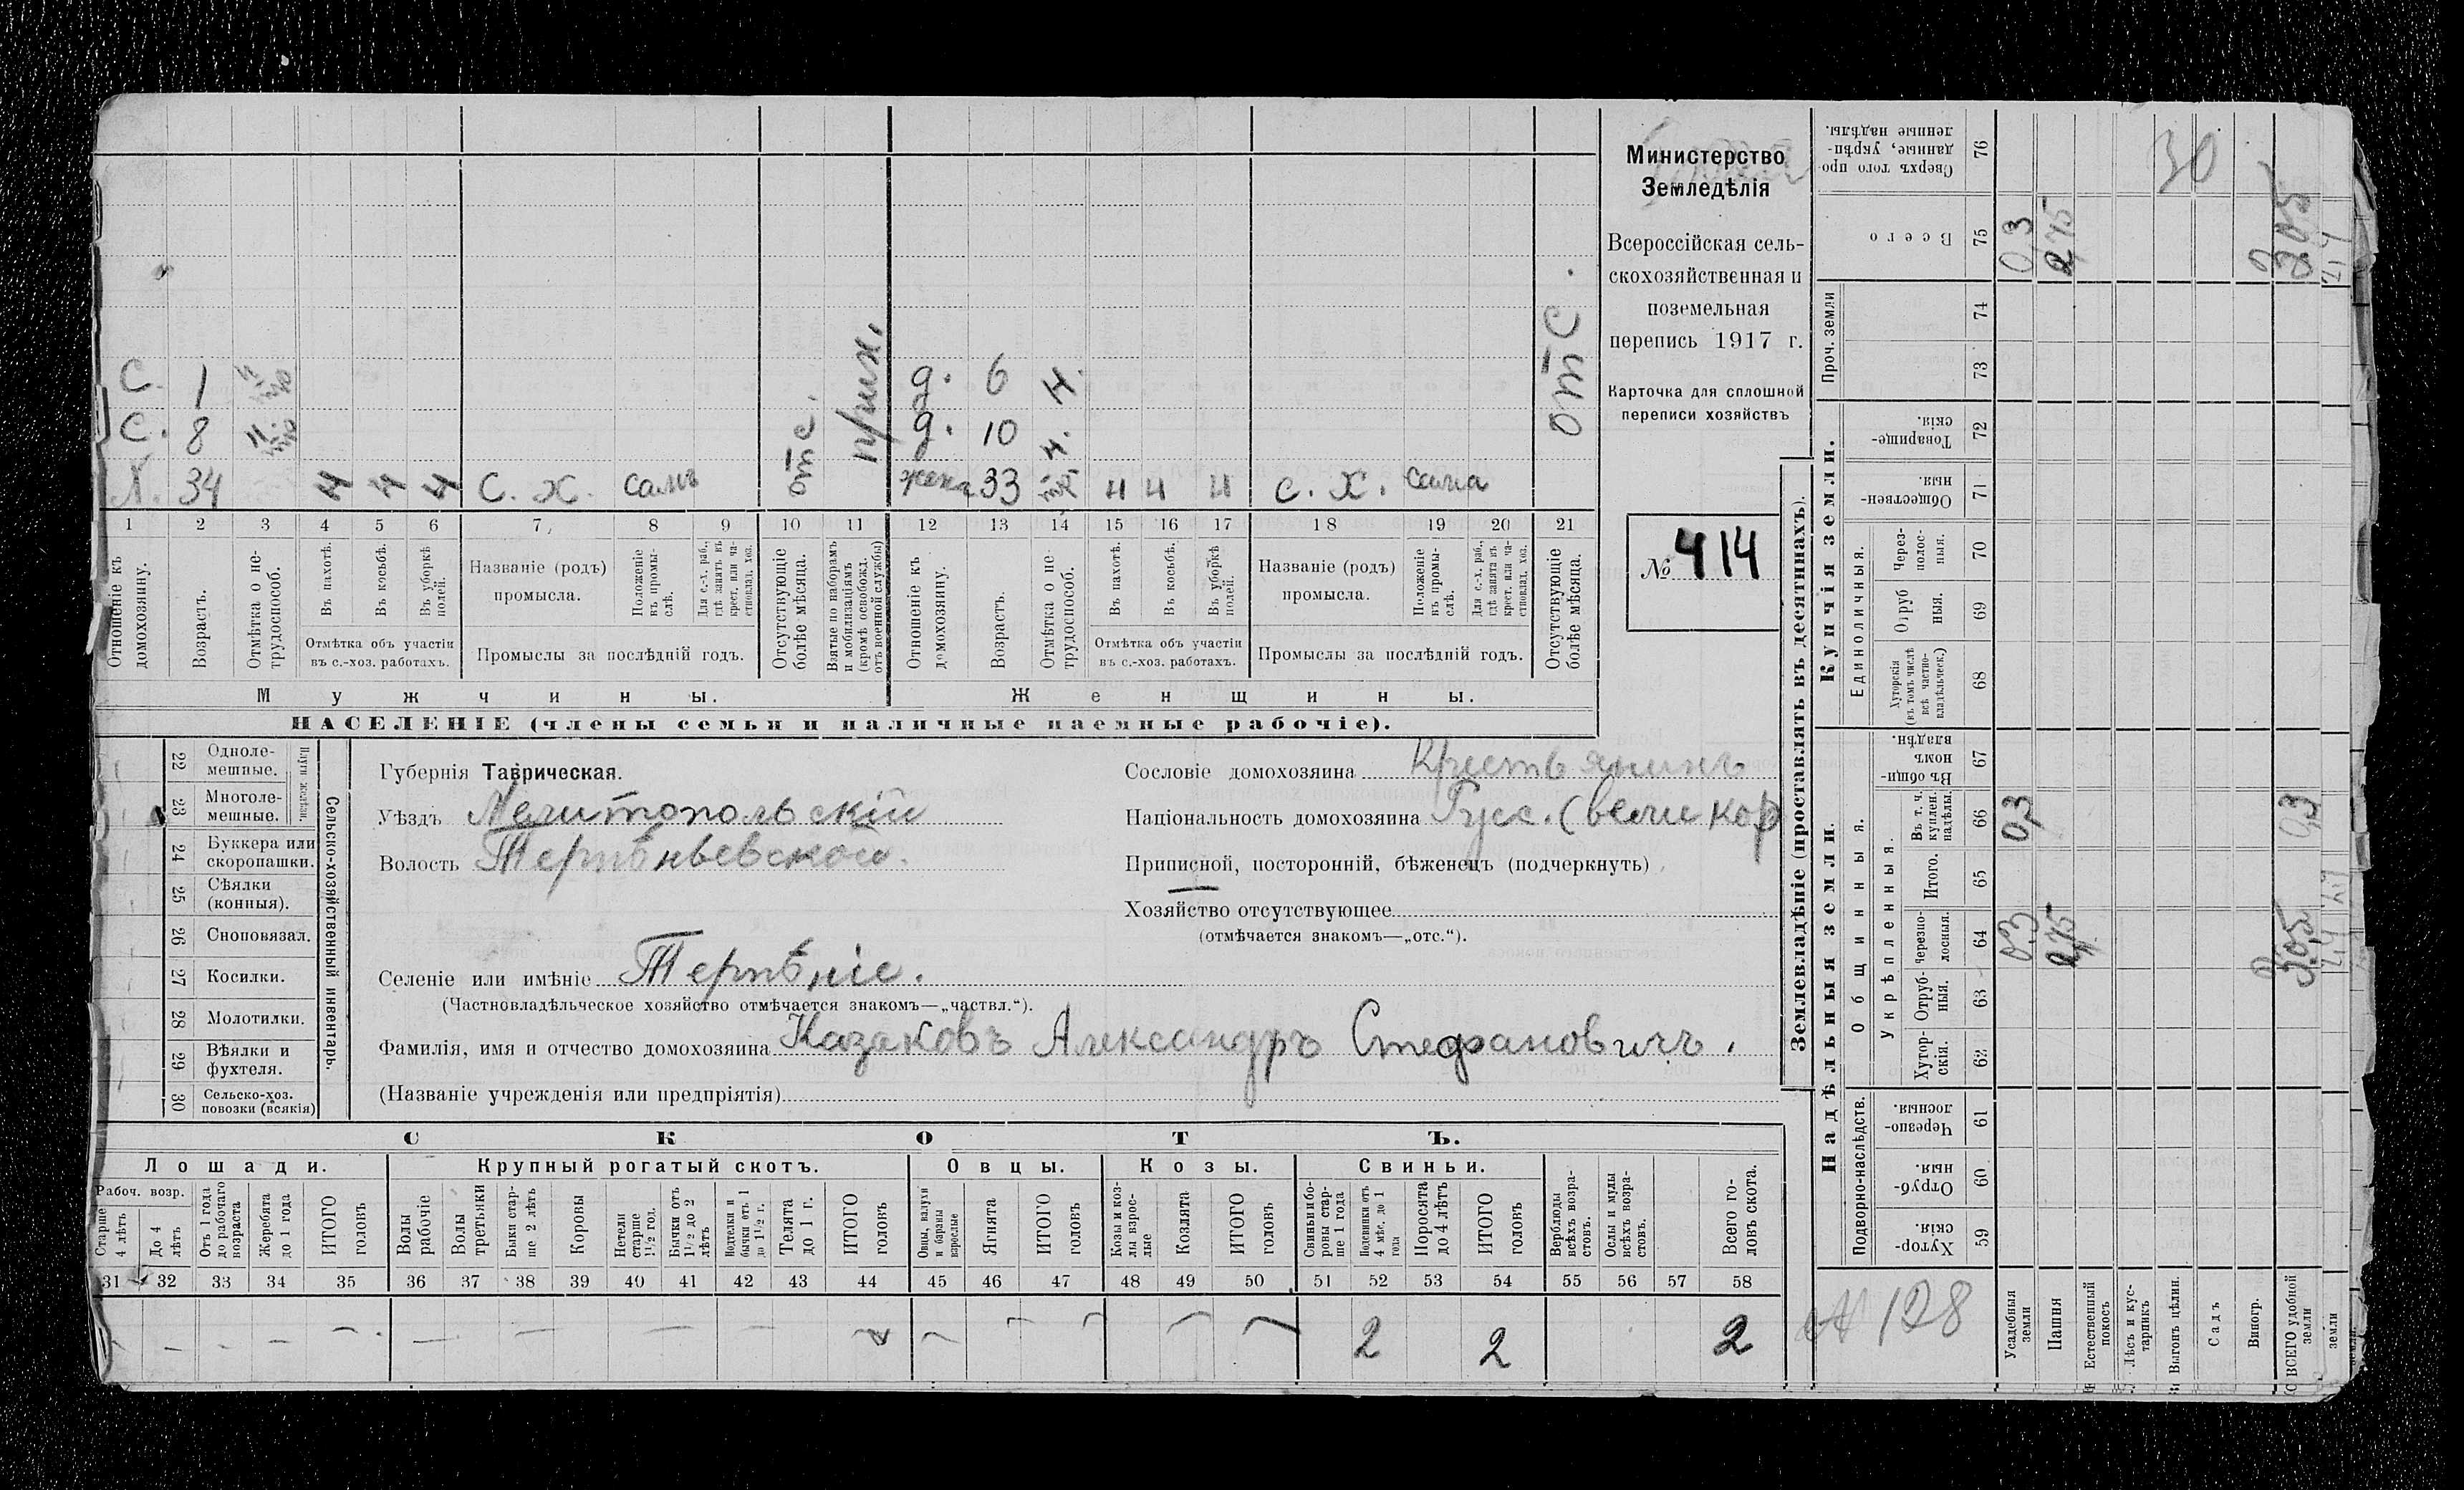 Министерство
Земледѣлія
Всероссійская сель-
скохозяйственная и
поземельная
перепись 1917 г.
Карточка для сплошной
переписи хозяйствъ
№ 414
С. 1
д. 6 н.
С. 8
д. 10 н.
34 н н н С. Х. самъ отс. жена 33 н н н с. х. сама отс.
1 2 3 4 5 6 7 8 9 10 11 12 13 14 15 16 17 18 19 20 21
Отношеніе къ домохозяину.
Возрастъ.
Отмѣтка о не-трудоспособ.
Въ пахотѣ.
Въ косьбѣ.
Въ уборкѣ полей.
Отмѣтка объ участіи
въ с.-хоз. работахъ.
Названіе (родъ)
промысла.
Положеніе въ промы-слѣ.
Для с.-х. раб., гдѣ занятъ въ крест. или ча-стновлад. хоз.
Промыслы за послѣдній годъ.
Отсутствующіе болѣе мѣсяца.
Взятые по наборамъ и мобилизаціямъ (кромѣ освобожд. отъ военной службы)
Отношеніе къ домохозяину.
Возрастъ.
Отмѣтка о не-трудоспособ.
Въ пахотѣ.
Въ косьбѣ.
Въ уборкѣ полей.
Отмѣтка объ участіи
въ с.-хоз. работахъ.
Названіе (родъ)
промысла.
Положеніе въ промы-слѣ.
Для с.-х. раб., гдѣ занята въ крест. или ча-стновлад. хоз.
Промыслы за послѣдній годъ.
Отсутствующіе болѣе мѣсяца.
Мужчины.
Женщины.
НАСЕЛЕНІЕ (члены семьи и наличные наемные рабочіе).
Сельско-хозяйственный инвентарь.
22 Одноле-мешные.
23 Многоле-мешные.
24 Буккера или скоропашки.
25 Сѣялки (конныя).
26 Сноповязал.
27 Косилки.
28 Молотилки.
29 Вѣялки и фухтеля.
30 Сельско-хоз. повозки (всякія)
Губернія Таврическая.
Уѣздъ Мелитопольскій
Волость Терпѣньевской.
Селеніе или имѣніе Терпѣніе.
(Частновладѣльческое хозяйство отмѣчается знакомъ—„частвл.“).
Фамилія, имя и отчество домохозяина Казаковъ Александръ Стефановичъ.
(Названіе учрежденія или предпріятія)
Сословіе домохозяина Крестьянинъ
Національность домохозяина Русс. (великор
Приписной, посторонній, бѣженецъ (подчеркнуть)
Хозяйство отсутствующее
(отмѣчается знакомъ—„отс.“).
СКОТЪ.
Лошади.
Крупный рогатый скотъ.
Овцы.
Козы.
Свиньи.
Рабоч. возр.
Старше 4 лѣтъ
До 4 лѣтъ
Отъ 1 года до рабочаго возраста
Жеребята до 1 года
ИТОГО головъ
Волы рабочіе
Волы третьяки
Быки стар-ше 2 лѣтъ
Коровы
Нетели старше 1½ год.
Бычки отъ 1½ до 2 лѣтъ
Подтелки и бычки отъ 1 до 1½ г.
Телята до 1 г.
ИТОГО головъ
Овцы, валухи и бараны взрослые
Ягнята
ИТОГО головъ
Козы и коз-лы взрос-лые
Козлята
ИТОГО головъ
Свиньи и бо-ровы стар-ше 1 года
Подсвинки отъ 4 мѣс. до 1 года
Поросята до 4 лѣтъ
ИТОГО головъ
Верблюды всѣхъ возра-стовъ.
Ослы и мулы всѣхъ возра-стовъ.
Всего го-ловъ скота.
31 32 33 34 35 36 37 38 39 40 41 42 43 44 45 46 47 48 49 50 51 52 53 54 55 56 57 58
2 2 2
Землевладѣніе (проставлять въ десятинахъ).
Надѣльныя земли.
Купчія земли.
Проч. земли
Подворно-наслѣдств.
Общинныя.
Укрѣпленныя.
Единоличныя.
Сверхъ того про-данные, укрѣп-ленные надѣлы. 76 30
Всего 75 0,3 2,75
74
73
Товарище-скія. 72
Обществен-ныя. 71
Через-полос-ныя. 70
Отруб ныя. 69
Хуторскія (въ томъ числѣ всѣ частно-владѣльческ.) 68
Въ общи-номъ владѣн. 67
Въ т. ч. куплен. надѣлы. 66 0,3 0,3
Итого. 65
Черезпо-лосныя. 64 0,3 2,75
Отруб-ныя. 63
Хутор-скія. 62
Черезпо-лосныя. 61
Отруб-ныя. 60
Хутор-скія. 59
128
Усадебныя земли
Пашня
Естественный покосъ
Лѣсъ и кус-тарникъ
Выгонъ цѣлин.
Садъ
Виногр.
ВСЕГО удобной земли
земли